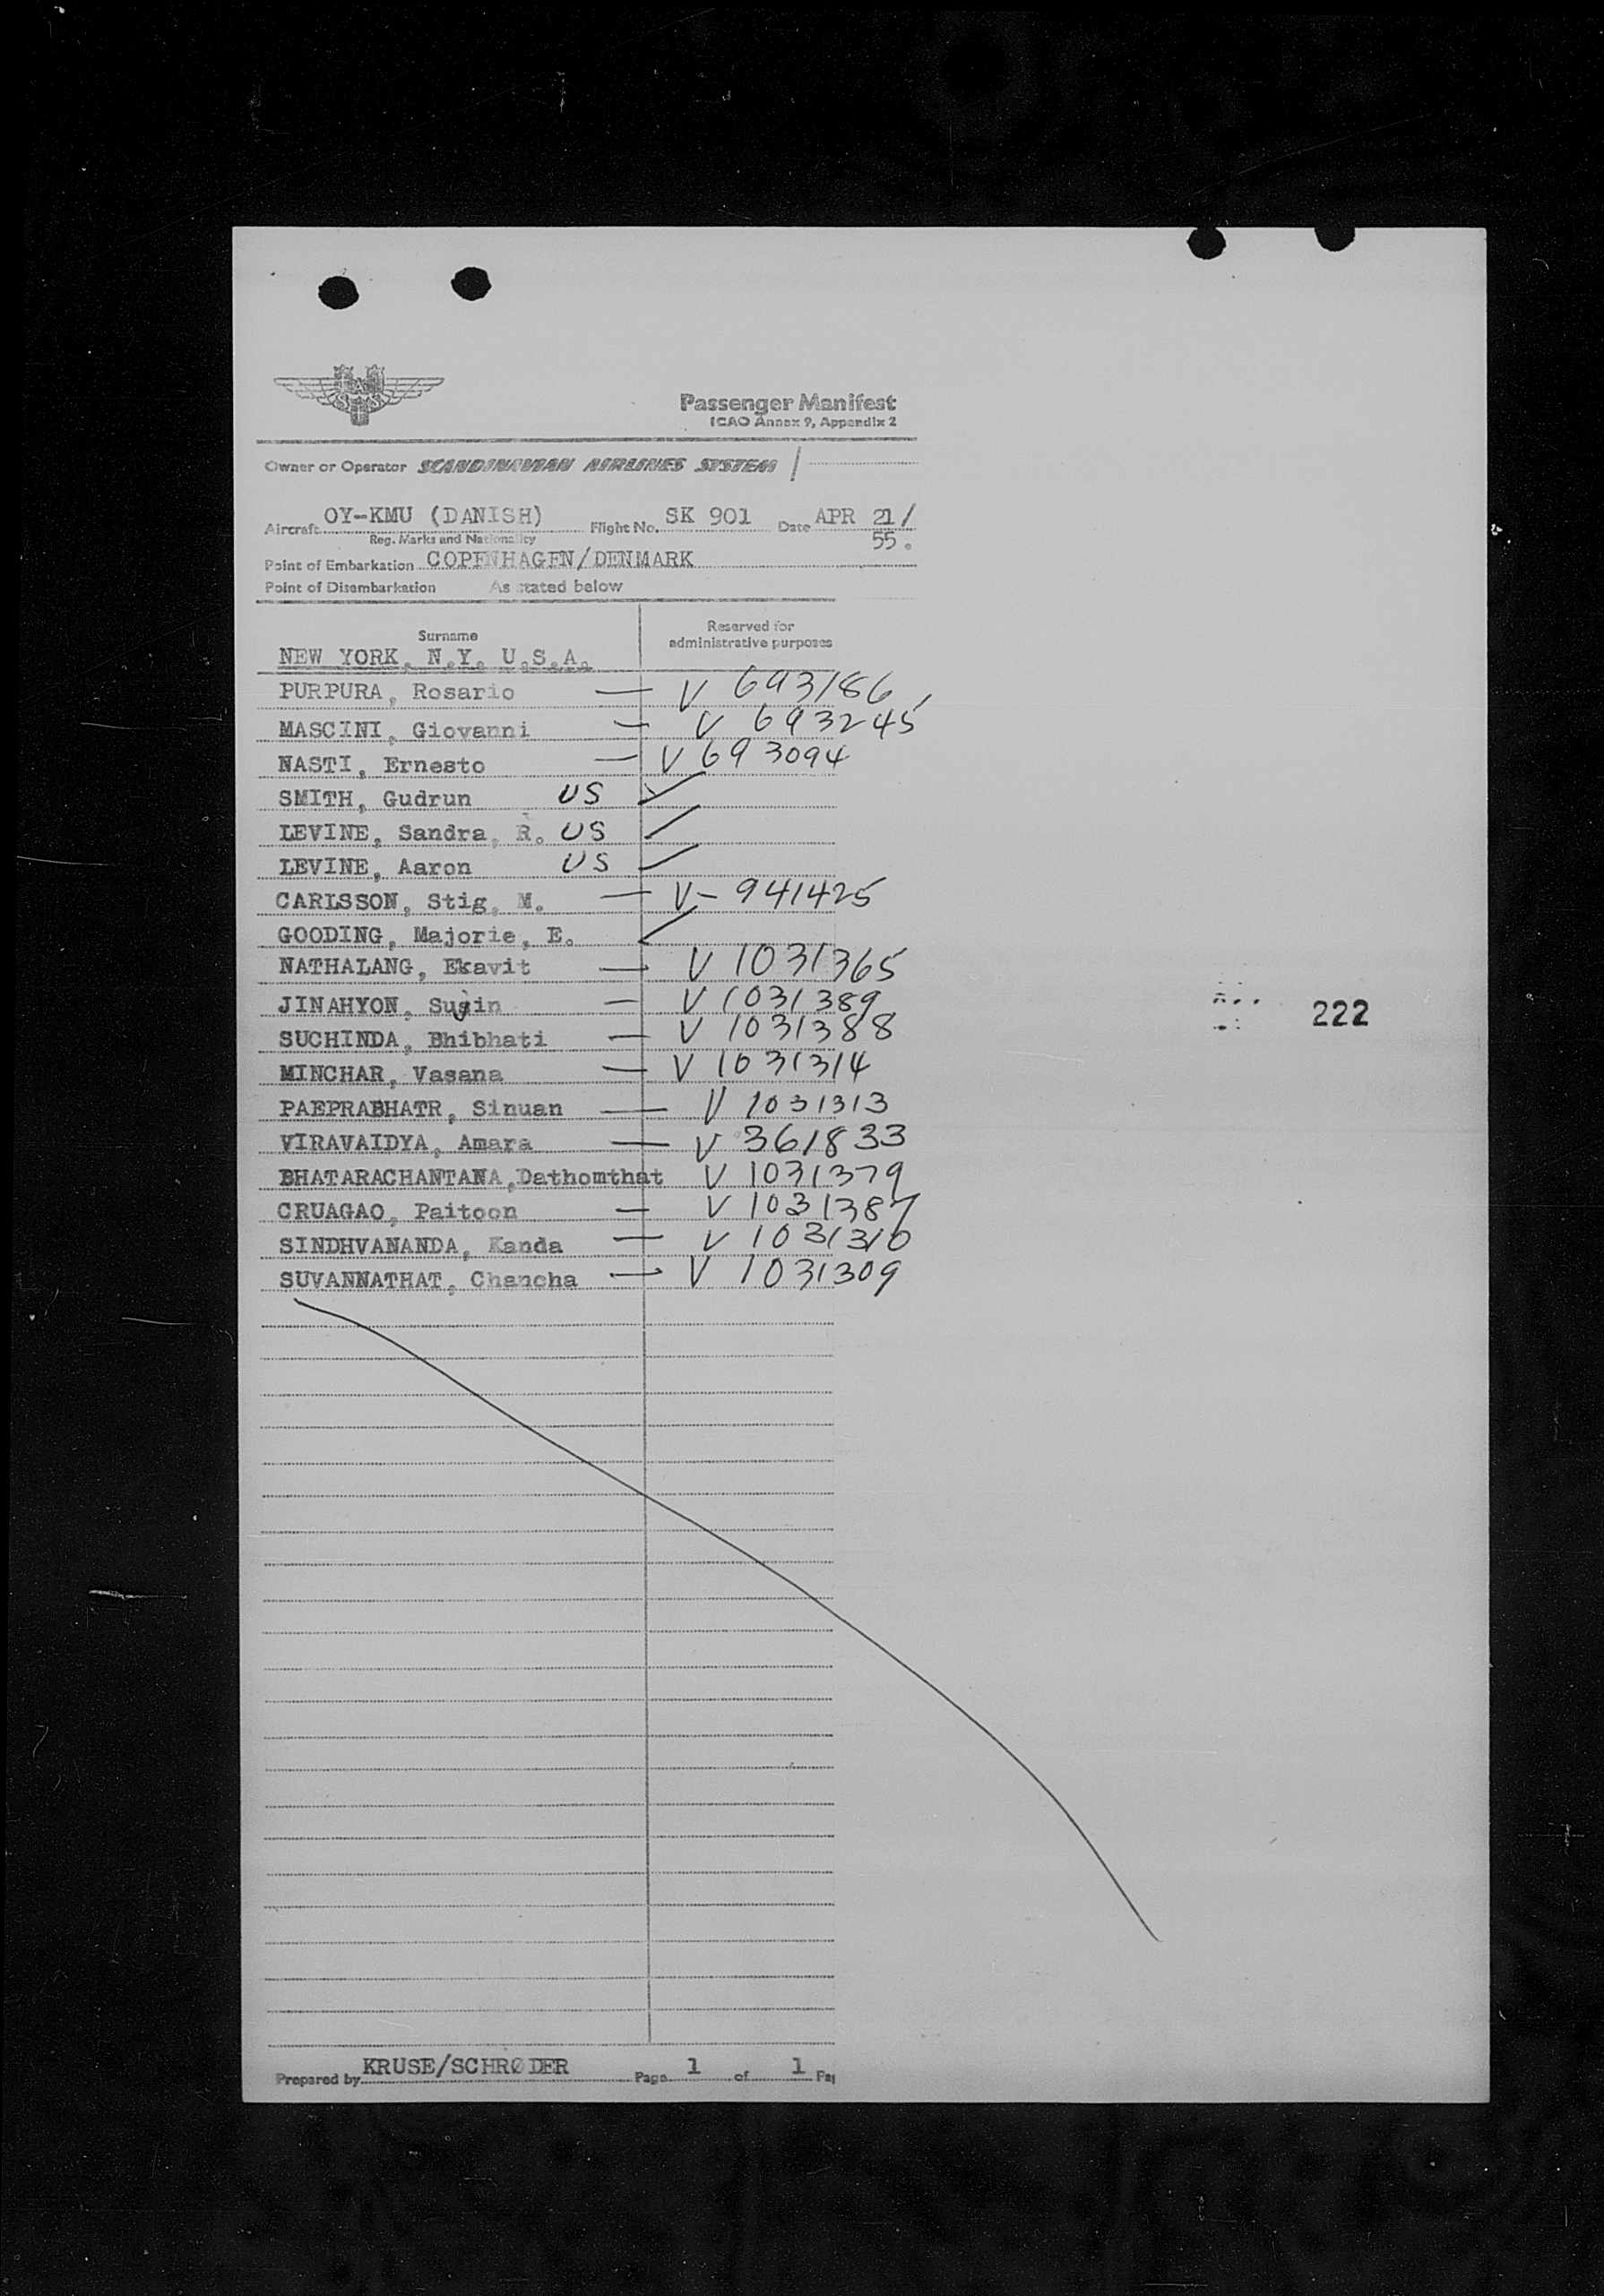 SAS
Passenger Manifest
ICAO Annex 9, Appendix 2
Owner or Operator SCANDINAVIAN AIRLINES SYSTEM /
Aircraft OY-KMU (DANISH) Flight No. SK 901 Date APR 21/
Reg. Marks and Nationality 55.
Point of Embarkation COPENHAGEN/DENMARK
Point of Disembarkation As stated below
Surname Reserved for administrative purposes
NEW YORK, N.Y. U.S.A.
PURPURA, Rosario — V 693186
MASCINI, Giovanni — V 693245
NASTI, Ernesto — V 693094
SMITH, Gudrun US ✓
LEVINE, Sandra, R. US ✓
LEVINE, Aaron US ✓
CARLSSON, Stig, M. — V- 941425
GOODING, Majorie, E. ✓
NATHALANG, Ekavit — V 1031365
JINAHYON, Sujin — V 1031389
SUCHINDA, Bhibhati — V 1031388
MINCHAR, Vasana — V 1031314
PAEPRABHATR, Sinuan — V 1031313
VIRAVAIDYA, Amara — V 361833
BHATARACHANTANA,Dathomthat V 1031379
CRUAGAO, Paitoon — V 1031387
SINDHVANANDA, Kanda — V 1031310
SUVANNATHAT, Chancha — V 1031309
222
Prepared by KRUSE/SCHRØDER Page 1 of 1 Pa